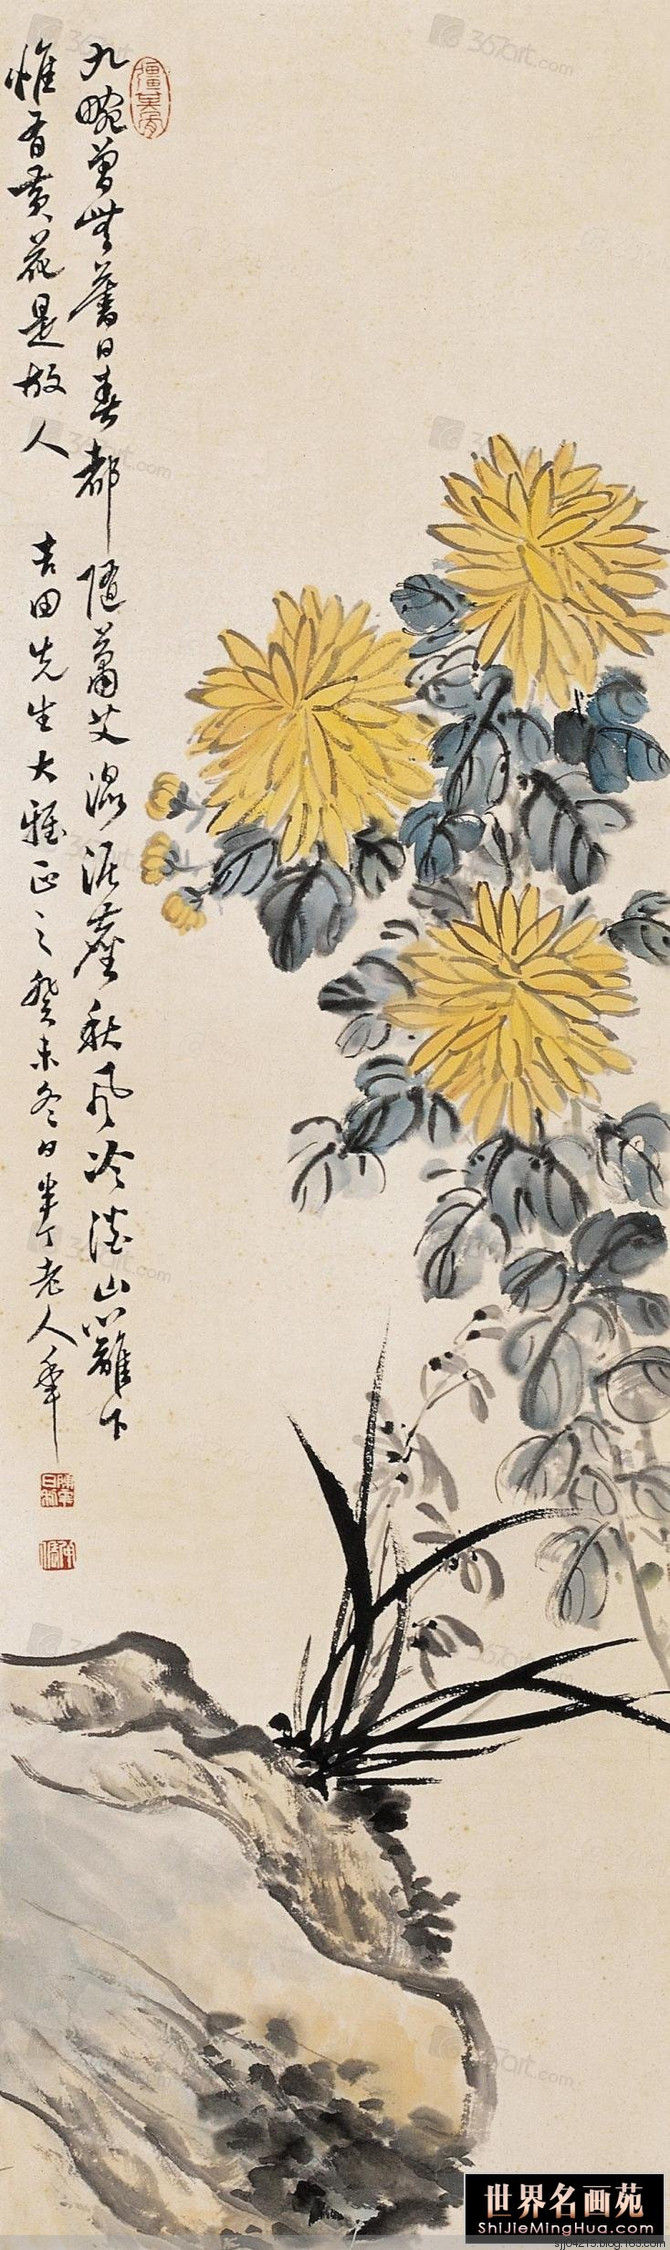 九畹曾無舊日春都隨蕭艾混泥塵秋風冷落山籬下
惟有黄花是故人
吉田先生大雅正之癸未冬日半丁老人年
世界名画苑
ShiJieMingHua.com
sjj04213.blog.163.com
367art.com